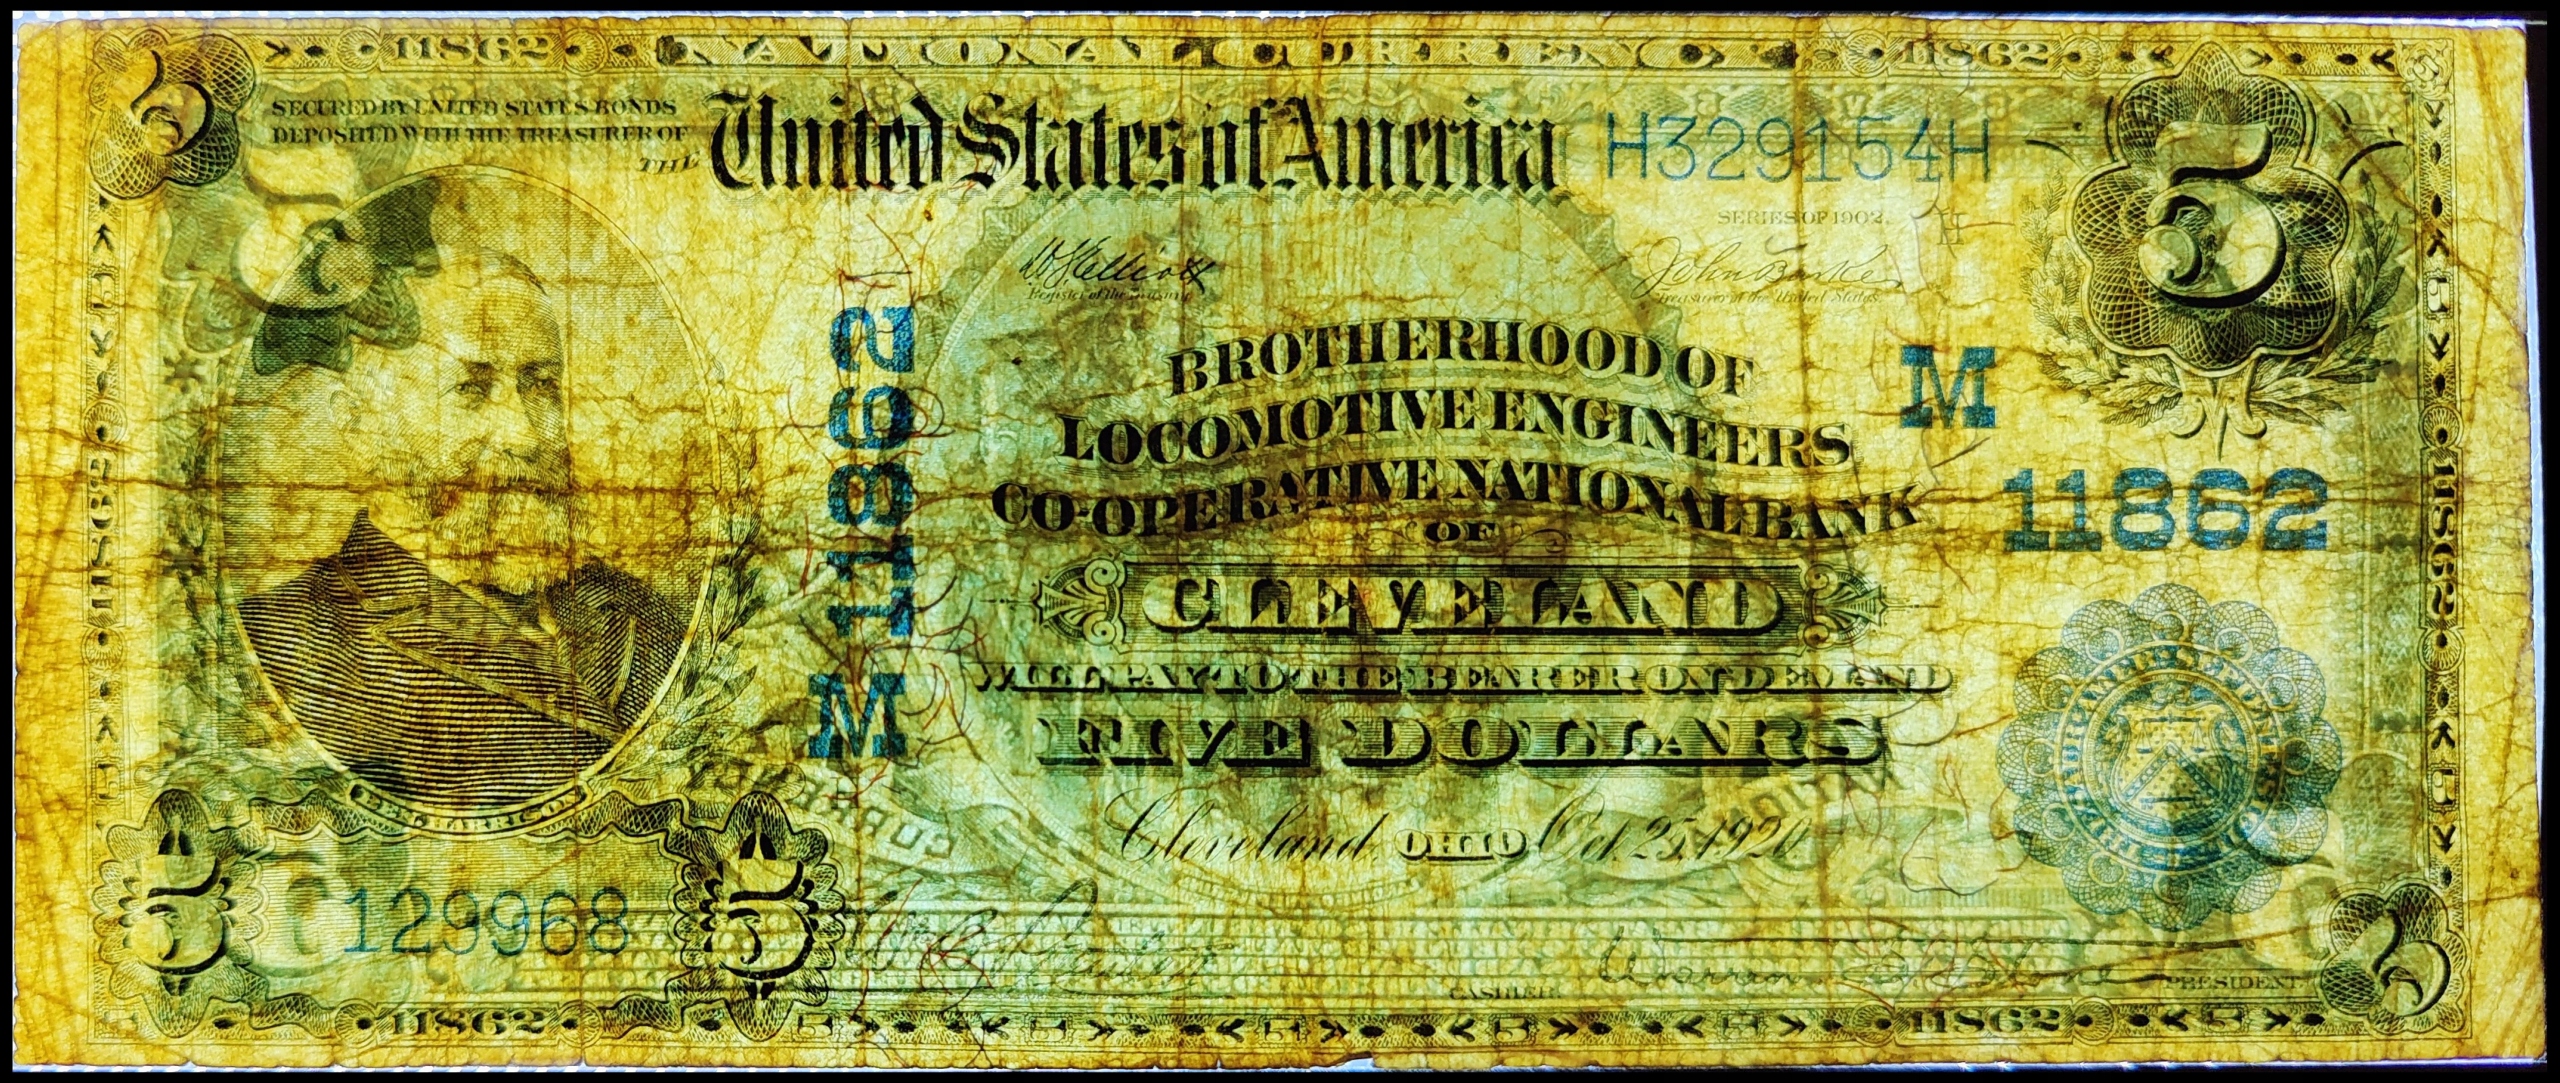 11862 NATIONAL CURRENCY 11862
SECURED BY UNITED STATES BONDS
DEPOSITED WITH THE TREASURER OF
THE
United States of America
H329154H
SERIES OF 1902.
H
Register of the Treasury
John Burke
Treasurer of the United States.
5
5
5
BROTHERHOOD OF
LOCOMOTIVE ENGINEERS
CO-OPERATIVE NATIONAL BANK
OF
CLEVELAND
WILL PAY TO THE BEARER ON DEMAND
FIVE DOLLARS
Cleveland, OHIO Oct. 25, 1920
M 11862
M
11862
11862
11862
129968
5
5
5
CASHIER.
Warren S. Stone
PRESIDENT.
11862 5 5 5 5 5 11862 5